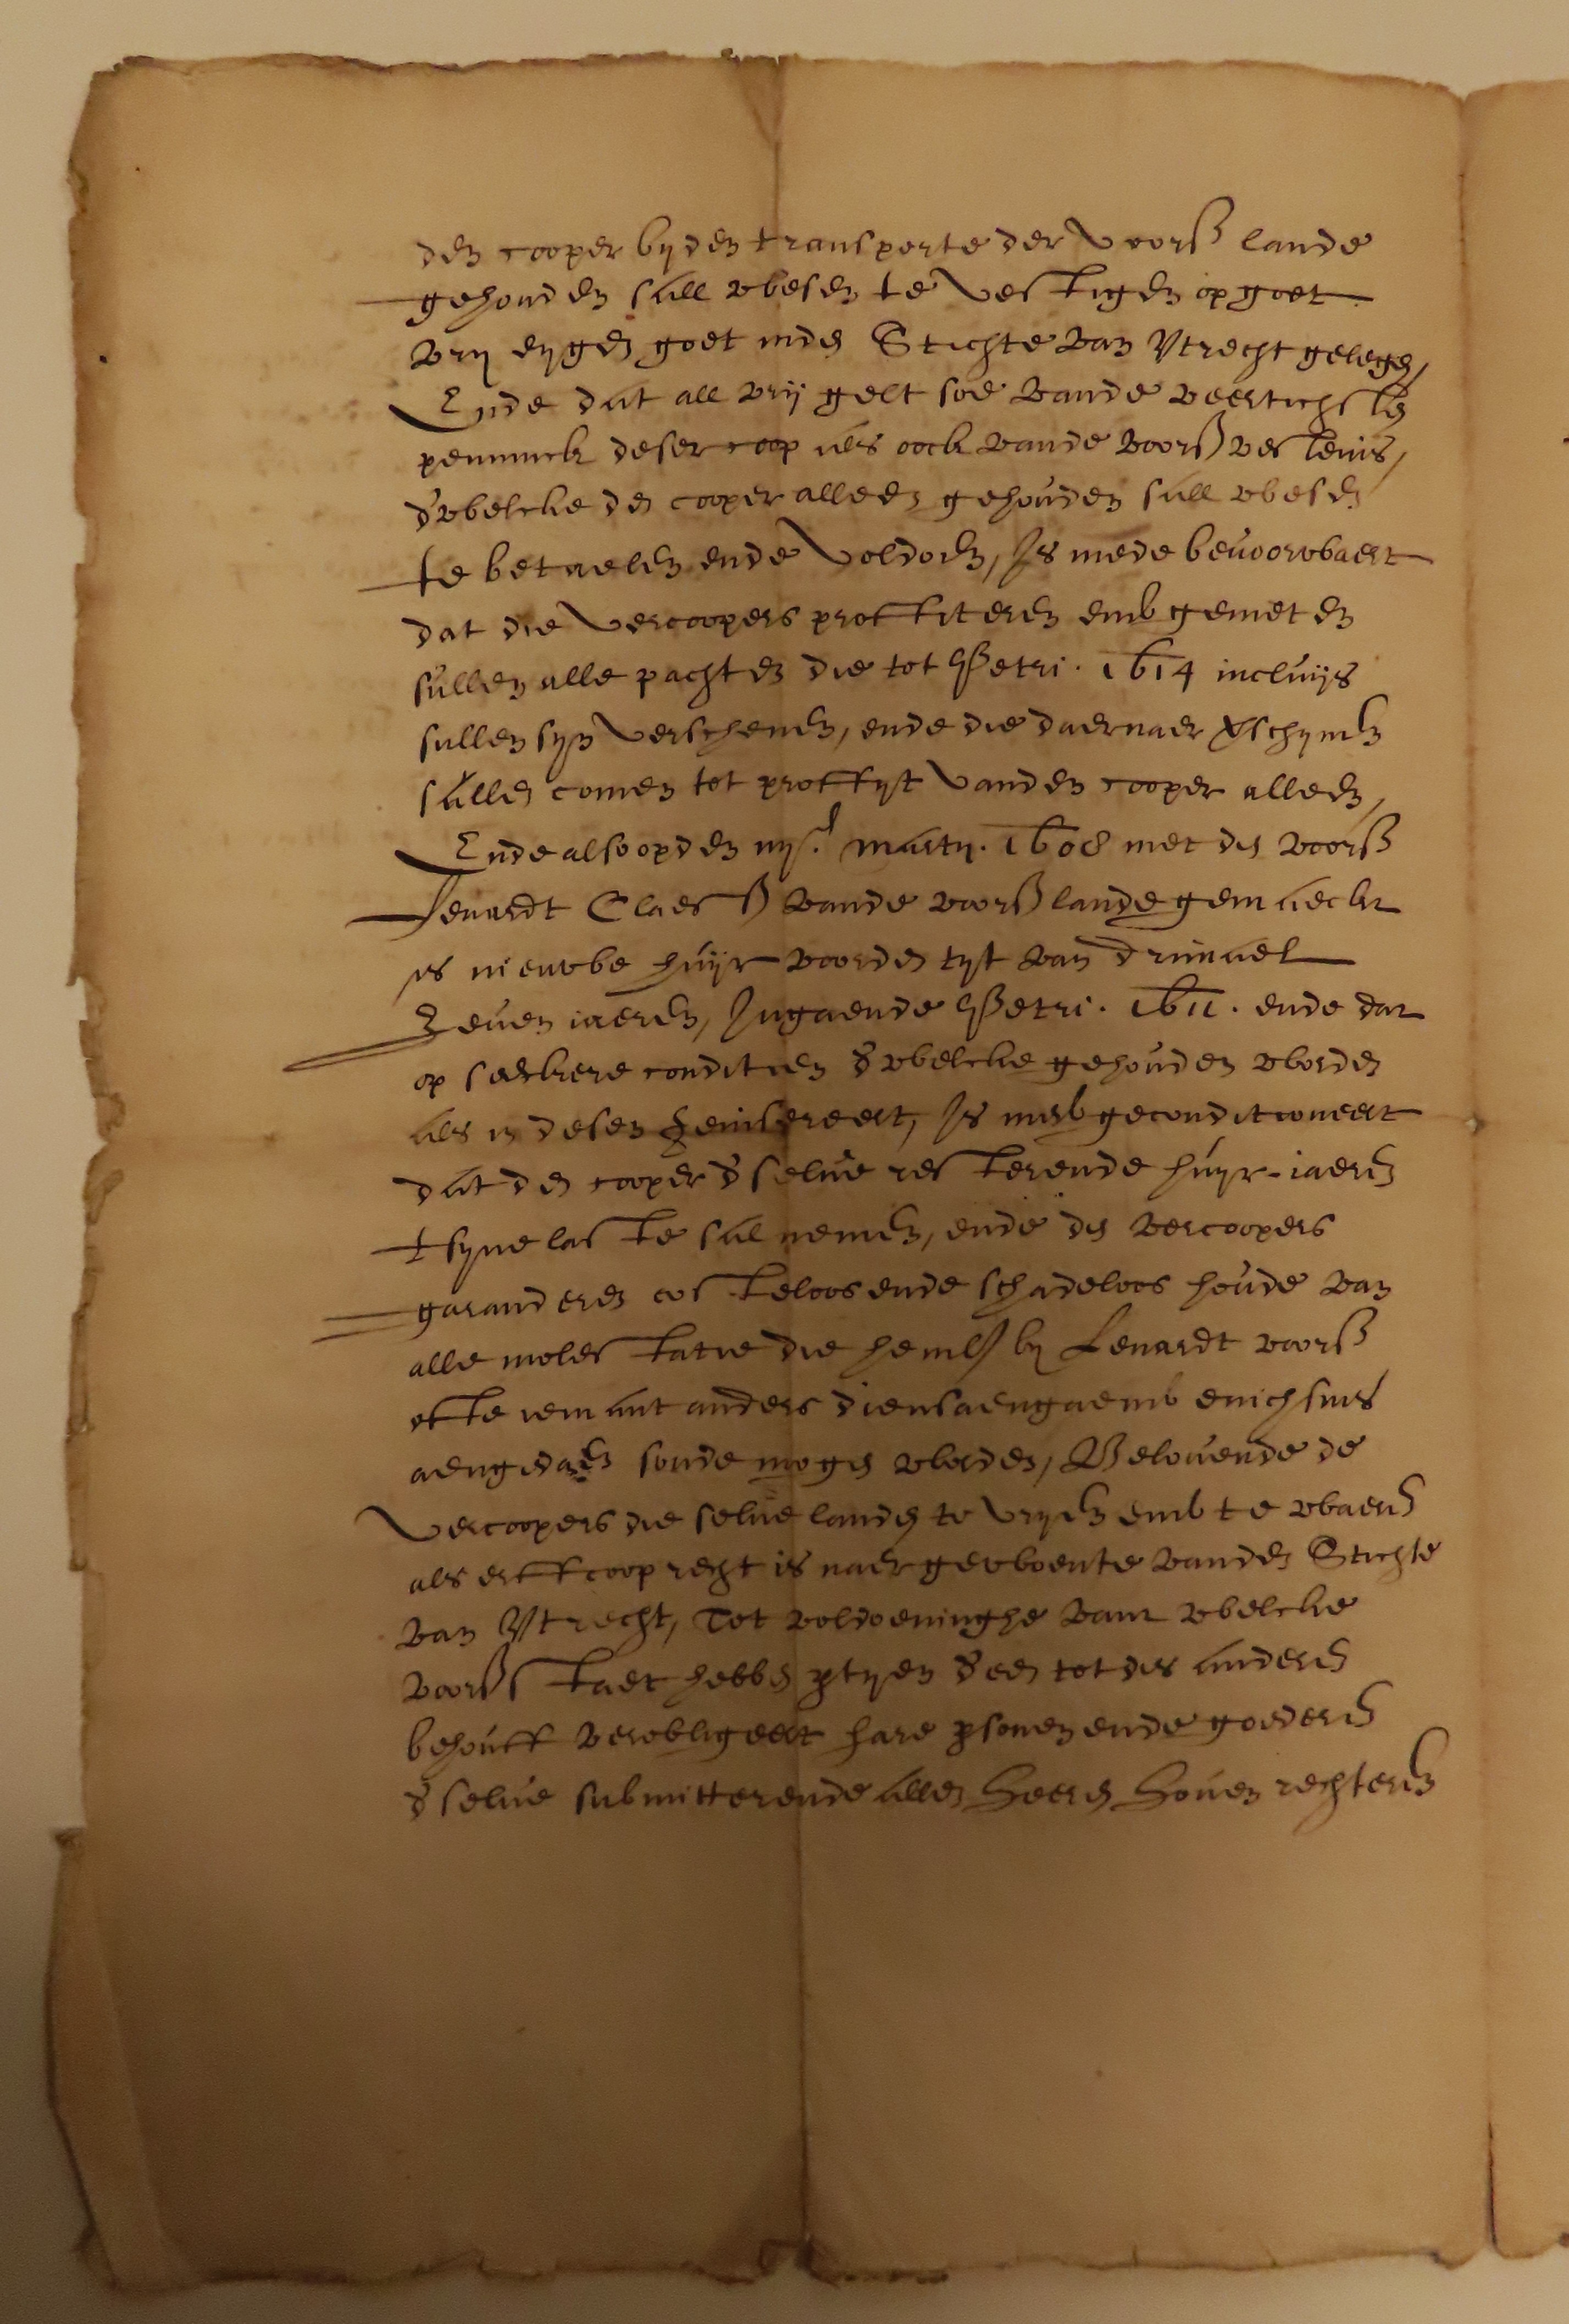 den cooper byden transporte der voorss lande
gehouden sall wesen te vestigen op goet
vry eygen goet inden Stichte van Vtrecht gelegen,
Ende dat all vrij gelt soe vande veertichsten
penninck deser coop als oock vande voorss vestenis,
dwelcke den cooper alleen gehouden sall wesen
te betaelen ende voldoen, Is mede bevoorwaert
dat die vercoopers proffiteren end genieten
sullen alle pachten die tot Petri. 1614 incluijs
sullen syn verschenen, ende die daernaer vschynen
sullen comen tot proffyt vanden cooper alleen,
Ende alsoo opden martij. 1608 met den voorss
Lenardt Claess vande voorss lande gemaeckt
is nieuwe huijr voorden tyt van drimael
Zeven iaeren, Ingaende Petri. 1611. ende dat
op seeckere conditien dwelcke gehouden worden
als in desen geinsereert, Is med geconditioneert
dat den cooper dselve resterende huyr iaeren
tsyne laste sal nemen, ende den vercoopers
garanderen costeloos ende schadeloos houde van
alle molestatie die heml by Lenardt voorss
ofte iemant anders diensaengaend enichsins
aengedaen soude mogen worden, Belovende de
vercoopers die selve landen te vryen end te waeren
als erffcoop recht is naer gewoente vanden Stichte
van Vtrecht, Tot voldoeninghe vant welcke
voorss staet hebben ptyen deen tot des anderen
behouff verobligeert hare psonen ende goederen
dselve submitterende allen Heeren Hoven rechteren